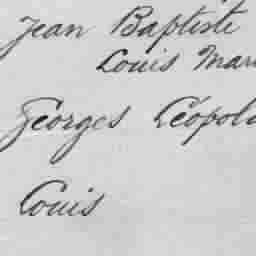 Jean Baptiste
Louis Mari
Georges Léopold
Louis